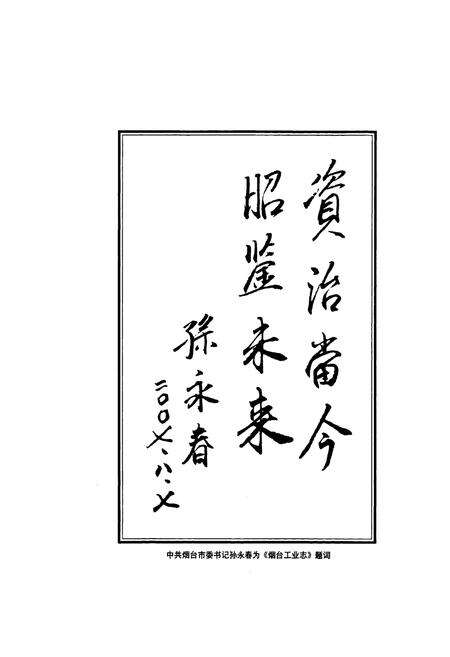 資治當今
昭鉴未来
孫永春
二〇〇七、八、七
中共烟台市委书记孙永春为《烟台工业志》题词